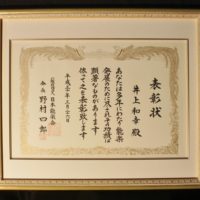 表彰状
井上和幸殿
あなたは多年にわたり能楽
発展のために尽されその功績は
顕著なものがあります
依ってこれを表彰致します
平成
日本能楽会
会長 野村四郎